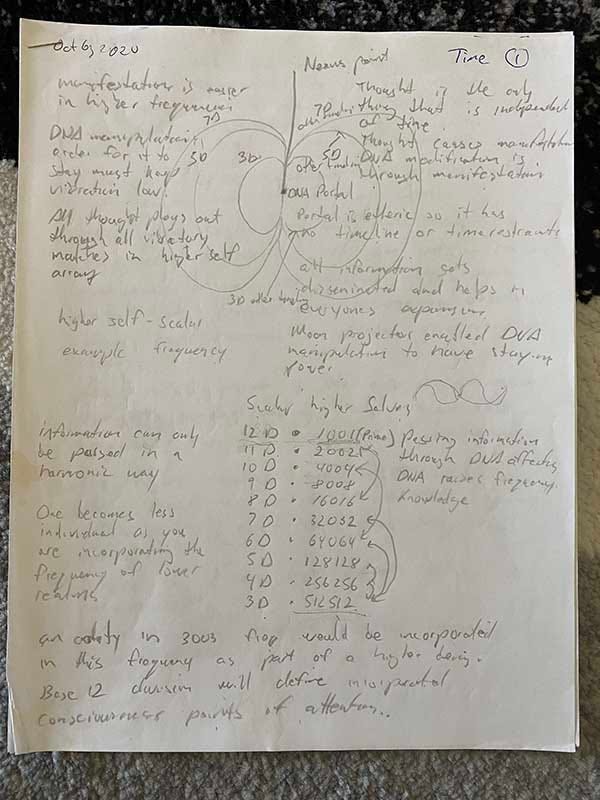 Oct 6, 2020
Time 1
Nexus point
manifestation is easier
in higher frequencies
7D
DNA manipulation in
order for it to
stay must keep
vibration low.
5D
3D
All thought plays out
through all vibratory
matches in higher self
array
higher self - scalar
example frequency
Thought is the only
thing that is independent
of time.
Thought causes manifestation
DNA modification is
through manifestation
7D other timeline
5D
other timeline
DNA Portal
Portal is etheric so it has
no timeline or time restraints
3D other timeline
all information gets
disseminated and helps in
everyones expansion
Moon projector enabled DNA
manipulation to have staying
power
Scalar higher Selves
12 D • 1001 (Prime)
11 D • 2002
10 D • 4004
9 D • 8008
8 D • 16016
7 D • 32032
6 D • 64064
5 D • 128128
4 D • 256256
3 D • 512512
information can only
be passed in a
harmonic way
One becomes less
individual as you
are incorporating the
frequency of lower
realms
Passing information
through DNA affects
DNA raises frequency.
Knowledge
an entity in 3003 freq would be incorporated
in this frequency as part of a higher being.
Base 12 division will define
consciousness points of attention..